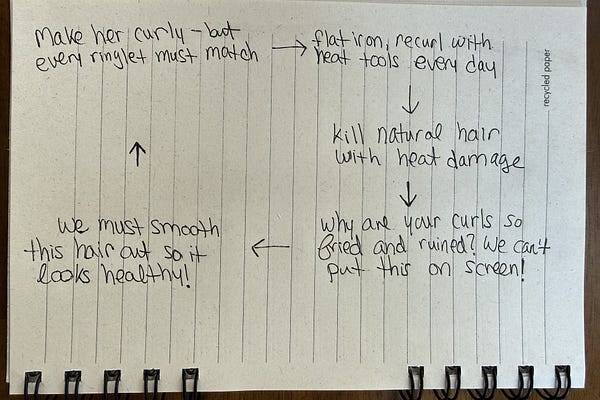 Make her curly - but
every ringlet must match
flat iron, recurl with
heat tools every day
kill natural hair
with heat damage
why are your curls so
fried and ruined? We can't
put this on screen!
we must smooth
this hair out so it
looks healthy!
recycled paper